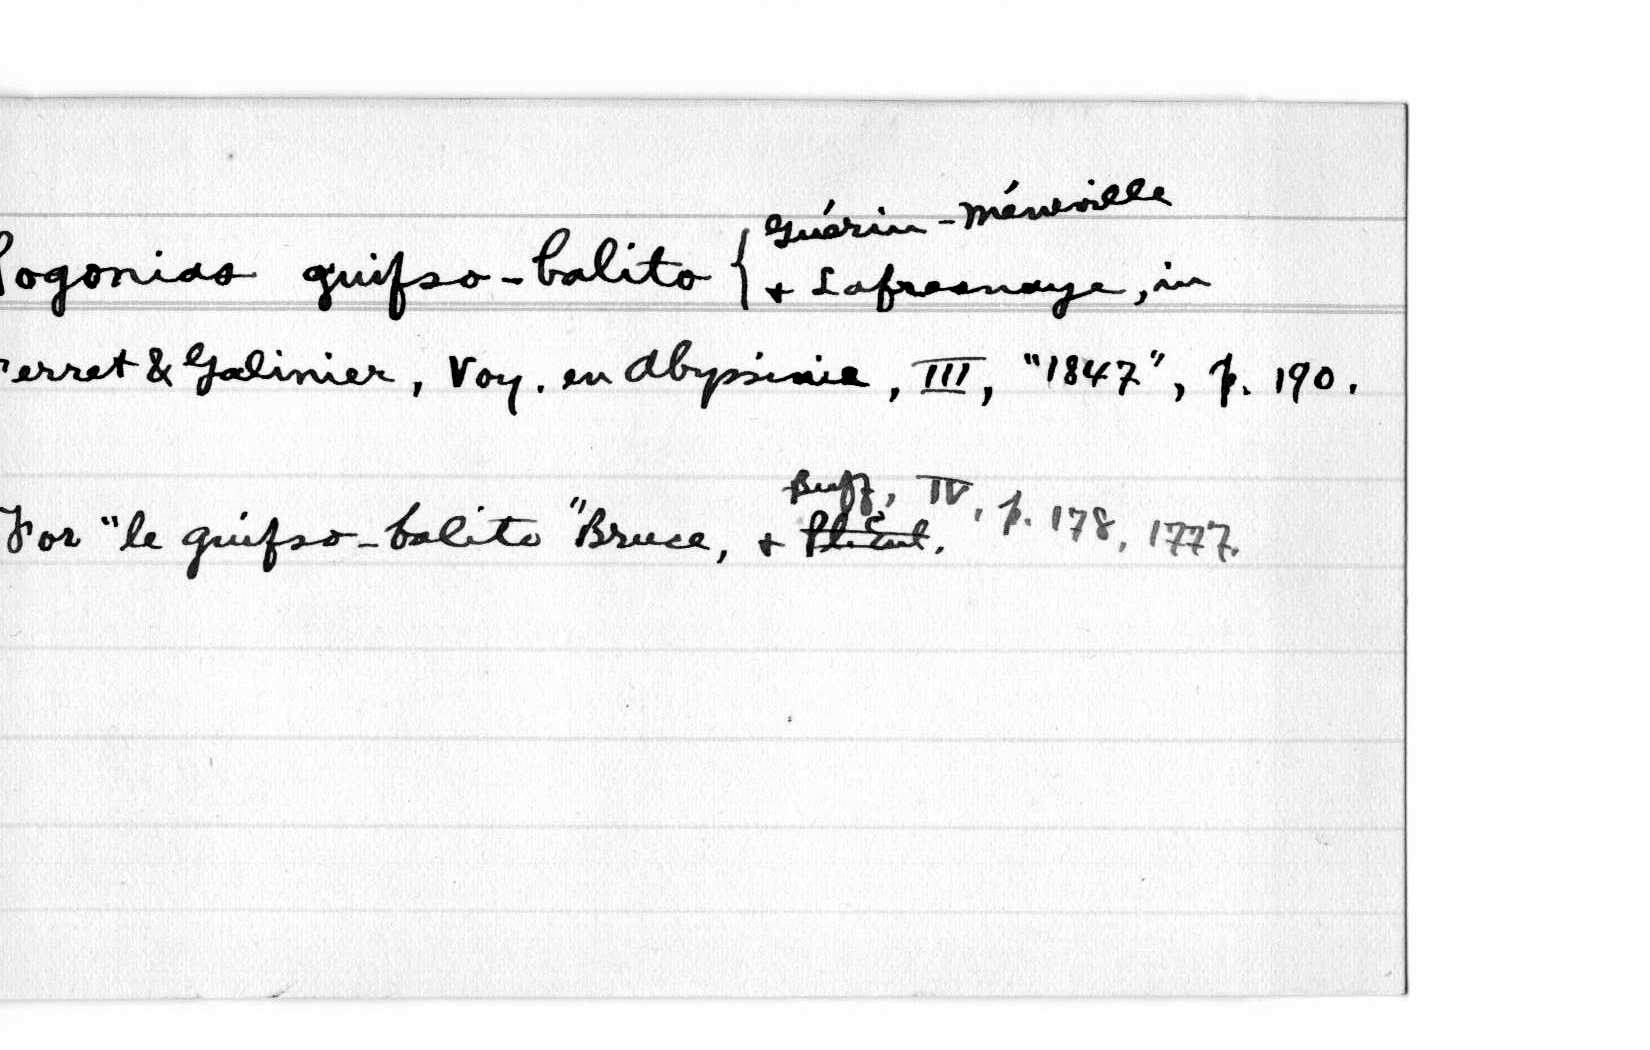 Guérin-Méneville
Pogonias guifso-balito { & Lafresnaye, in
Ferret & Galinier, Voy. en Abyssinie, III, "1847", p. 190.
Buff, IV, p. 178, 1777.
For "le guifso-balito" Bruce, &